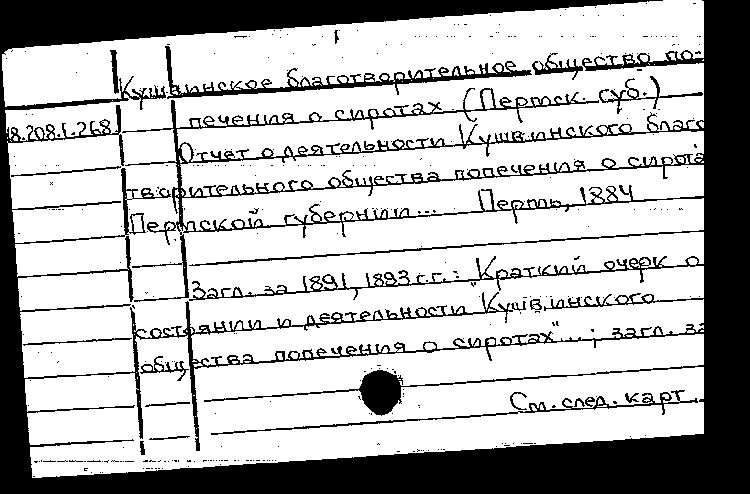 Кушвинское благотворительное общество по-
18.208.1.268. печения о сиротах. (Пермск. губ.)
Отчет о деятельности Кушвинского благо
творительного общества попечения о сирота
Пермской губернии... Пермь, 1884
Загл. за 1891, 1893 г.г.: "Краткий очерк о
состоянии и деятельности Кушвинского
общества попечения о сиротах"...; загл. за
См. след. карт.